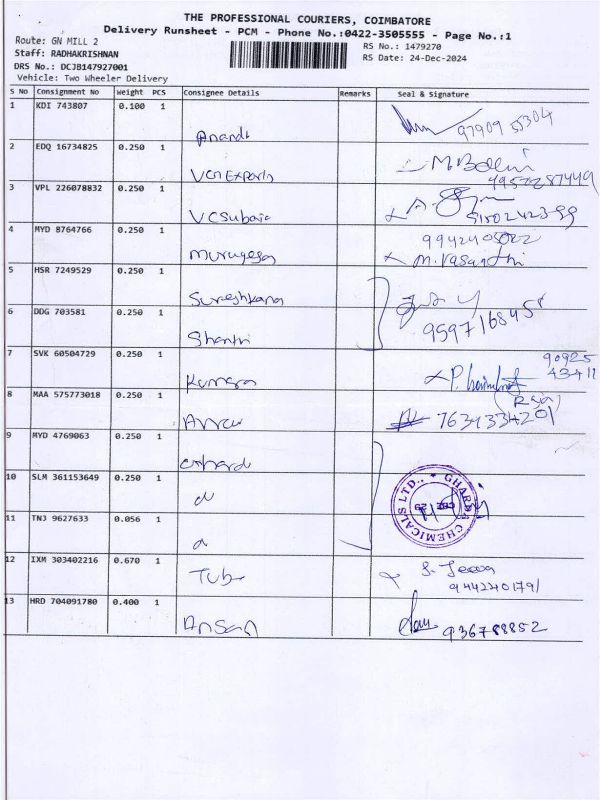 THE PROFESSIONAL COURIERS, COIMBATORE
Delivery Runsheet - PCM - Phone No.:0422-3505555 - Page No.:1
Route: GN MILL 2
RS No.: 1479270
Staff: RADHAKRISHNAN
RS Date: 24-Dec-2024
DRS No.: DCJB147927001
Vehicle: Two Wheeler Delivery
S No Consignment No Weight PCS Consignee Details Remarks Seal & Signature
1 KDI 743807 0.100 1
Anandh
2 EDQ 16734825 0.250 1
VCN Exports
3 VPL 226078832 0.250 1
VCSubaia
4 MYD 8764766 0.250 1
Murugesan M.Vasanthi
5 HSR 7249529 0.250 1
Sureshkana
6 DDG 703581 0.250 1
9597168458
Shanthi
7 SVK 60504729 0.250 1
90925
43411
Kumara
8 MAA 575773018 0.250 1
9 MYD 4769063 0.250 1
10 SLM 361153649 0.250 1
GHARDA CHEMICALS LTD.,
11 TNJ 9627633 0.056 1
12 IXM 303402216 0.670 1
Tube
13 HRD 704091780 0.400 1
Ansan 936788852